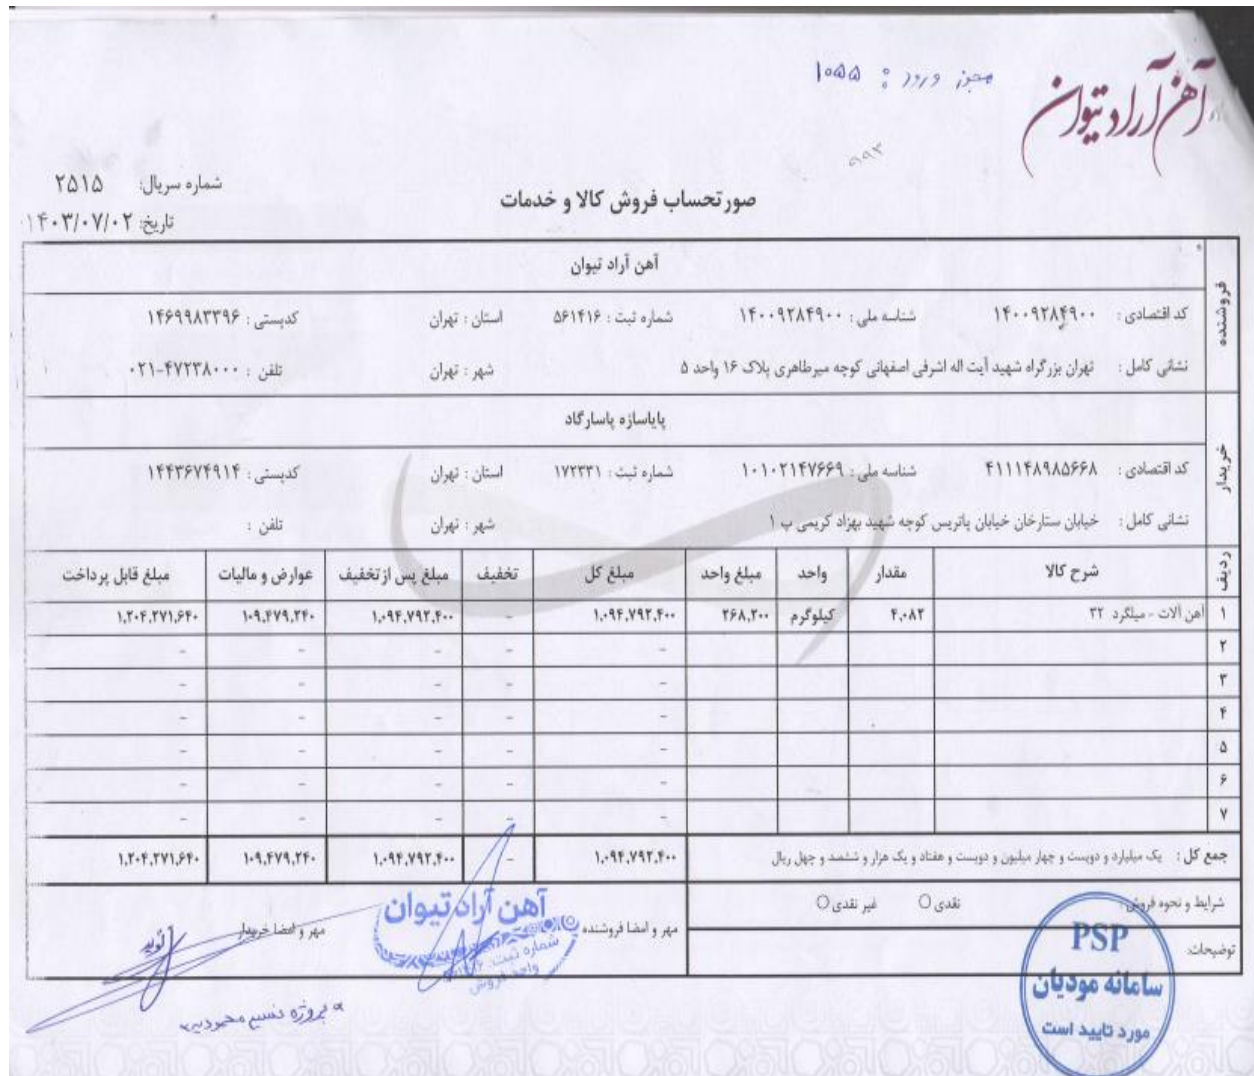 مجوز ورود : ۱۰۵۵
آهن آراد تیوان
۹۹۳
شماره سریال: ۲۵۱۵
صورتحساب فروش کالا و خدمات
تاریخ: ۱۴۰۳/۰۷/۰۲
فروشنده
آهن آراد تیوان
کد اقتصادی : ۱۴۰۰۹۲۸۴۹۰۰ شناسه ملی : ۱۴۰۰۹۲۸۴۹۰۰ شماره ثبت : ۵۶۱۴۱۶ استان : تهران کدپستی : ۱۴۶۹۹۸۳۳۹۶
نشانی کامل : تهران بزرگراه شهید آیت اله اشرفی اصفهانی کوچه میرطاهری پلاک ۱۶ واحد ۵ شهر : تهران تلفن : ۰۲۱-۴۷۲۳۸۰۰۰
خریدار
پایاسازه پاسارگاد
کد اقتصادی : ۴۱۱۱۴۸۹۸۵۶۶۸ شناسه ملی : ۱۰۱۰۲۱۴۷۶۶۹ شماره ثبت : ۱۷۲۳۳۱ استان : تهران کدپستی : ۱۴۴۳۶۷۴۹۱۴
نشانی کامل : خیابان ستارخان خیابان پاتریس کوچه شهید بهزاد کریمی پ ۱ شهر : تهران تلفن :
ردیف شرح کالا مقدار واحد مبلغ واحد مبلغ کل تخفیف مبلغ پس از تخفیف عوارض و مالیات مبلغ قابل پرداخت
۱ آهن آلات - میلگرد ۳۲ ۴,۰۸۲ کیلوگرم ۲۶۸,۲۰۰ ۱,۰۹۴,۷۹۲,۴۰۰ - ۱,۰۹۴,۷۹۲,۴۰۰ ۱۰۹,۴۷۹,۲۴۰ ۱,۲۰۴,۲۷۱,۶۴۰
۲ - - - - -
۳ - - - - -
۴ - - - - -
۵ - - - - -
۶ - - - - -
۷ - - - - -
جمع کل : یک میلیارد و دویست و چهار میلیون و دویست و هفتاد و یک هزار و ششصد و چهل ریال ۱,۰۹۴,۷۹۲,۴۰۰ - ۱,۰۹۴,۷۹۲,۴۰۰ ۱۰۹,۴۷۹,۲۴۰ ۱,۲۰۴,۲۷۱,۶۴۰
شرایط و نحوه فروش: نقدی غیر نقدی
توضیحات:
مهر و امضا فروشنده
مهر و امضا خریدار
آهن آراد تیوان
شماره ثبت:
واحد فروش
PSP
سامانه مودیان
مورد تایید است
پروژه نسیم محمودیه